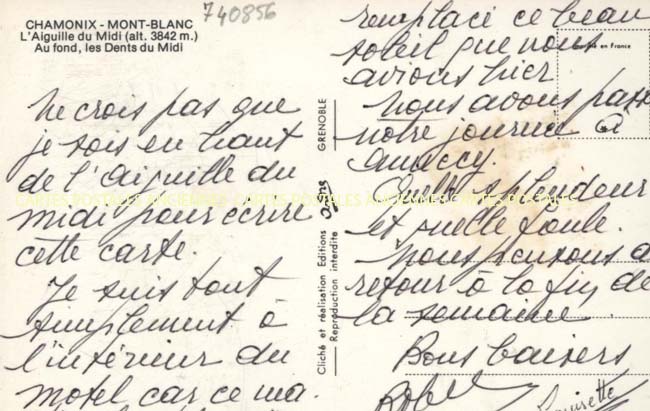 740856
CHAMONIX - MONT-BLANC
L'Aiguille du Midi (alt. 3842 m.)
Au fond, les Dents du Midi
Ne crois pas que
je sois en haut
de l'aiguille du
midi pour écrire
cette carte.
Je suis tout
simplement à
l'intérieur du
motel car ce ma
GRENOBLE
Cliché et réalisation Editions
Reproduction interdite
remplacé ce beau
soleil que nous
avions hier
en France
Nous avons passé
notre journée à
annecy.
Quelle splendeur
et quelle foule.
Nous pensons
retour à la fin de
la semaine.
Bons baisers
CARTES POSTALES ANCIENNES CARTES POSTALES ANCIENNES CARTES POSTALES